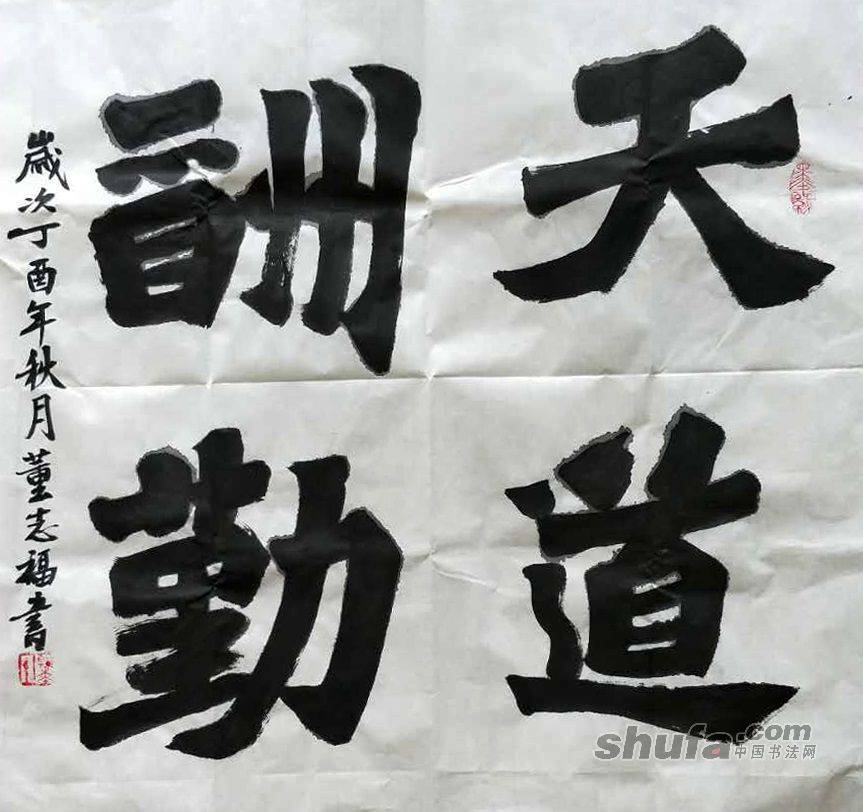 天道
酬勤
歲次丁酉年秋月董志福書
shufa.com
中国书法网